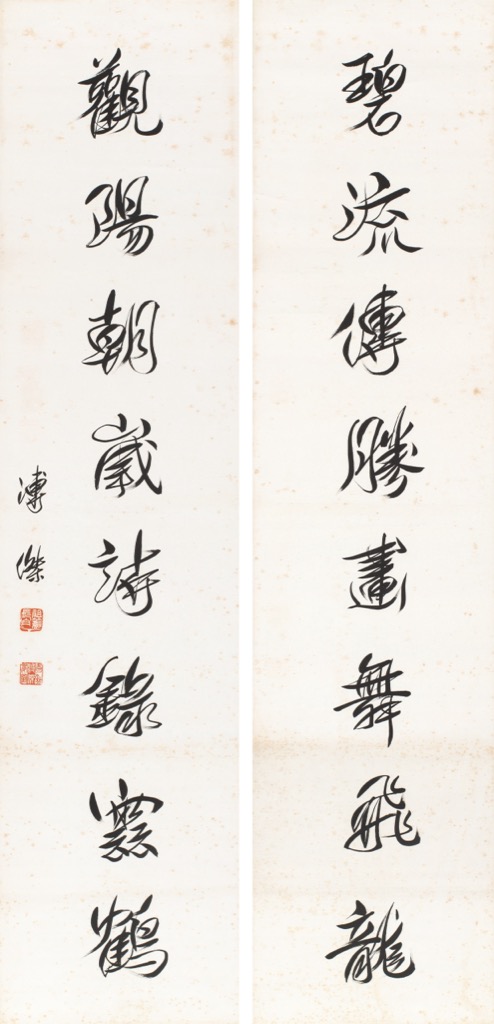 碧流傳勝畫舞飛龍
觀陽朝嵗詩錄鶴
溥傑